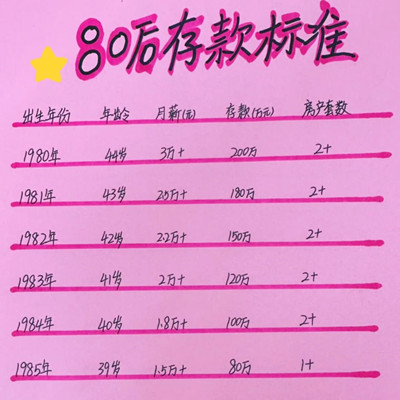 80后存款标准
出生年份 年龄 月薪(元) 存款(万元) 房产套数
1980年 44岁 3万+ 200万 2+
1981年 43岁 2.5万+ 180万 2+
1982年 42岁 2.2万+ 150万 2+
1983年 41岁 2万+ 120万 2+
1984年 40岁 1.8万+ 100万 2+
1985年 39岁 1.5万+ 80万 1+